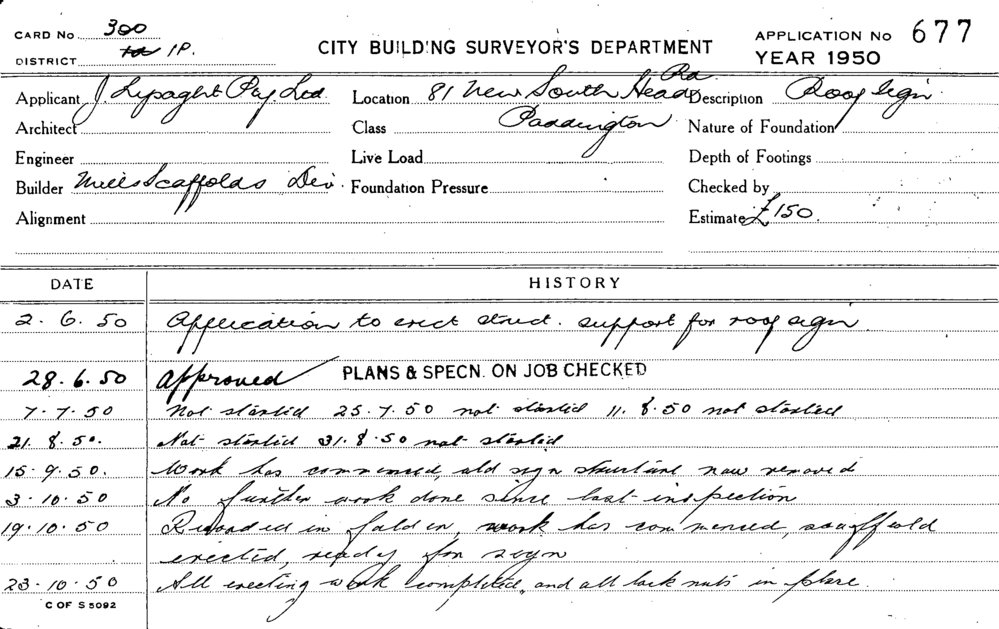 CARD No 300
DISTRICT 1P.
CITY BUILDING SURVEYOR'S DEPARTMENT
APPLICATION No 677
YEAR 1950
Applicant J. Lysaght Pty. Ltd
Location 81 New South Head Rd
Description Roof sign
Architect
Class Paddington
Nature of Foundation
Engineer
Live Load
Depth of Footings
Builder Mills Scaffolds Dev.
Foundation Pressure
Checked by
Alignment
Estimate £150.
DATE HISTORY
2. 6. 50 Application to erect struct. support for roof sign.
28. 6. 50 Approved PLANS & SPECN. ON JOB CHECKED
7. 7. 50 Not started 25. 7. 50 not started 11. 8. 50 not started
21. 8. 50. Not started 31. 8. 50 not started
15. 9. 50. Work has commenced, old sign structure now removed
3. 10. 50 No further work done since last inspection
19. 10. 50 Recorded in folder, work has commenced, scaffold
erected, ready for sign
23. 10. 50 All erecting work completed, and all lock nuts in place.
C OF S 5092